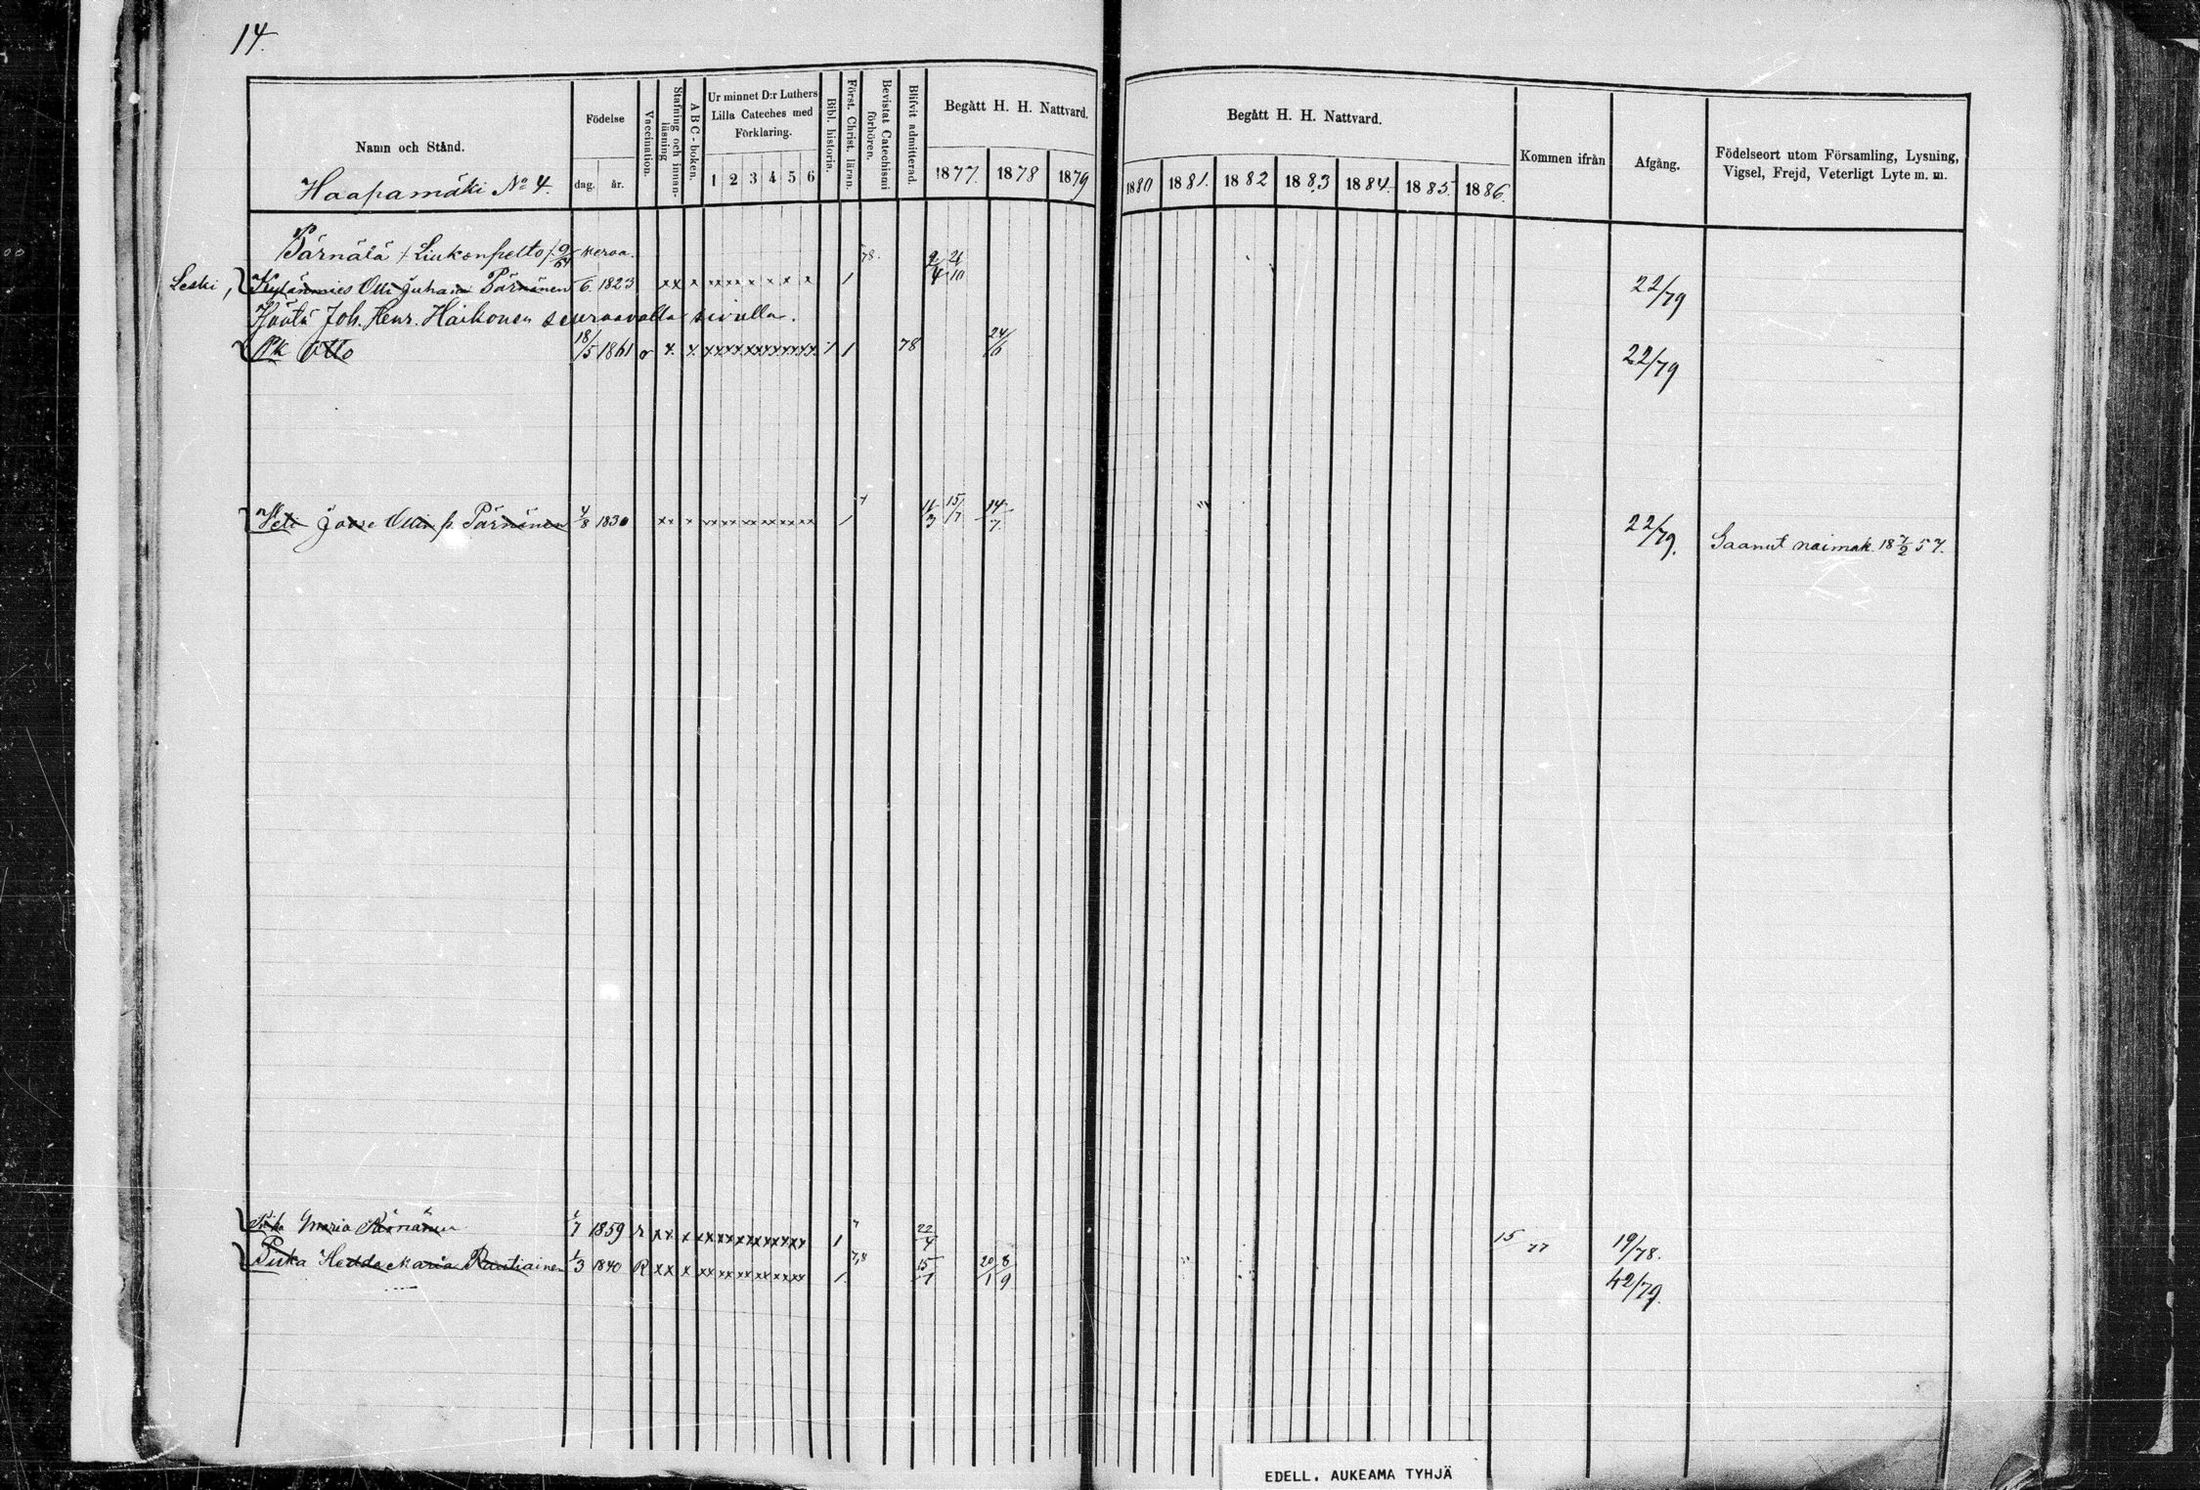 14.
Namn och Stånd.
Haapamäki No 4.
Födelse
dag. år.
Vaccination.
Stafning och innanläsning
ABC-boken.
Ur minnet D:r Luthers Lilla Cateches med Förklaring.
1 2 3 4 5 6
Bibl. historia.
Först. Christ. läran.
Bevistat Catechismi förhören.
Blifvit admitterad.
Begått H. H. Nattvard.
1877. 1878 1879
Begått H. H. Nattvard.
1880 1881. 1882 1883 1884. 1885. 1886.
Kommen ifrån
Afgång.
Födelseort utom Församling, Lysning, Vigsel, Frejd, Veterligt Lyte m. m.
Pärnälä / Liukonpelto / 9/64 veroa. 78. 9/4 21/10
Leski, Kylänmies Olli Juhana Pärnänen 6. 1823 xx x 1 22/79
Joh. Henr. Haikonen seuraavalla sivulla.
Pk Otto 18/5 1861 1 1 78 24/6 22/79
Veli Jaose Ollin p. Pärnänen 4/8 1830 xx x 1 11/3 15/7 14/7. 22/79. Saanut naimak. 18 7/2 57.
Maria 1859 r xx x 1 22/4 15/77 19/78.
Piika Hedda Maria Rautiainen 1/3 1840 R xx x 1 7,8 15/1 20/1 8/9 42/79.
EDELL. AUKEAMA TYHJÄ